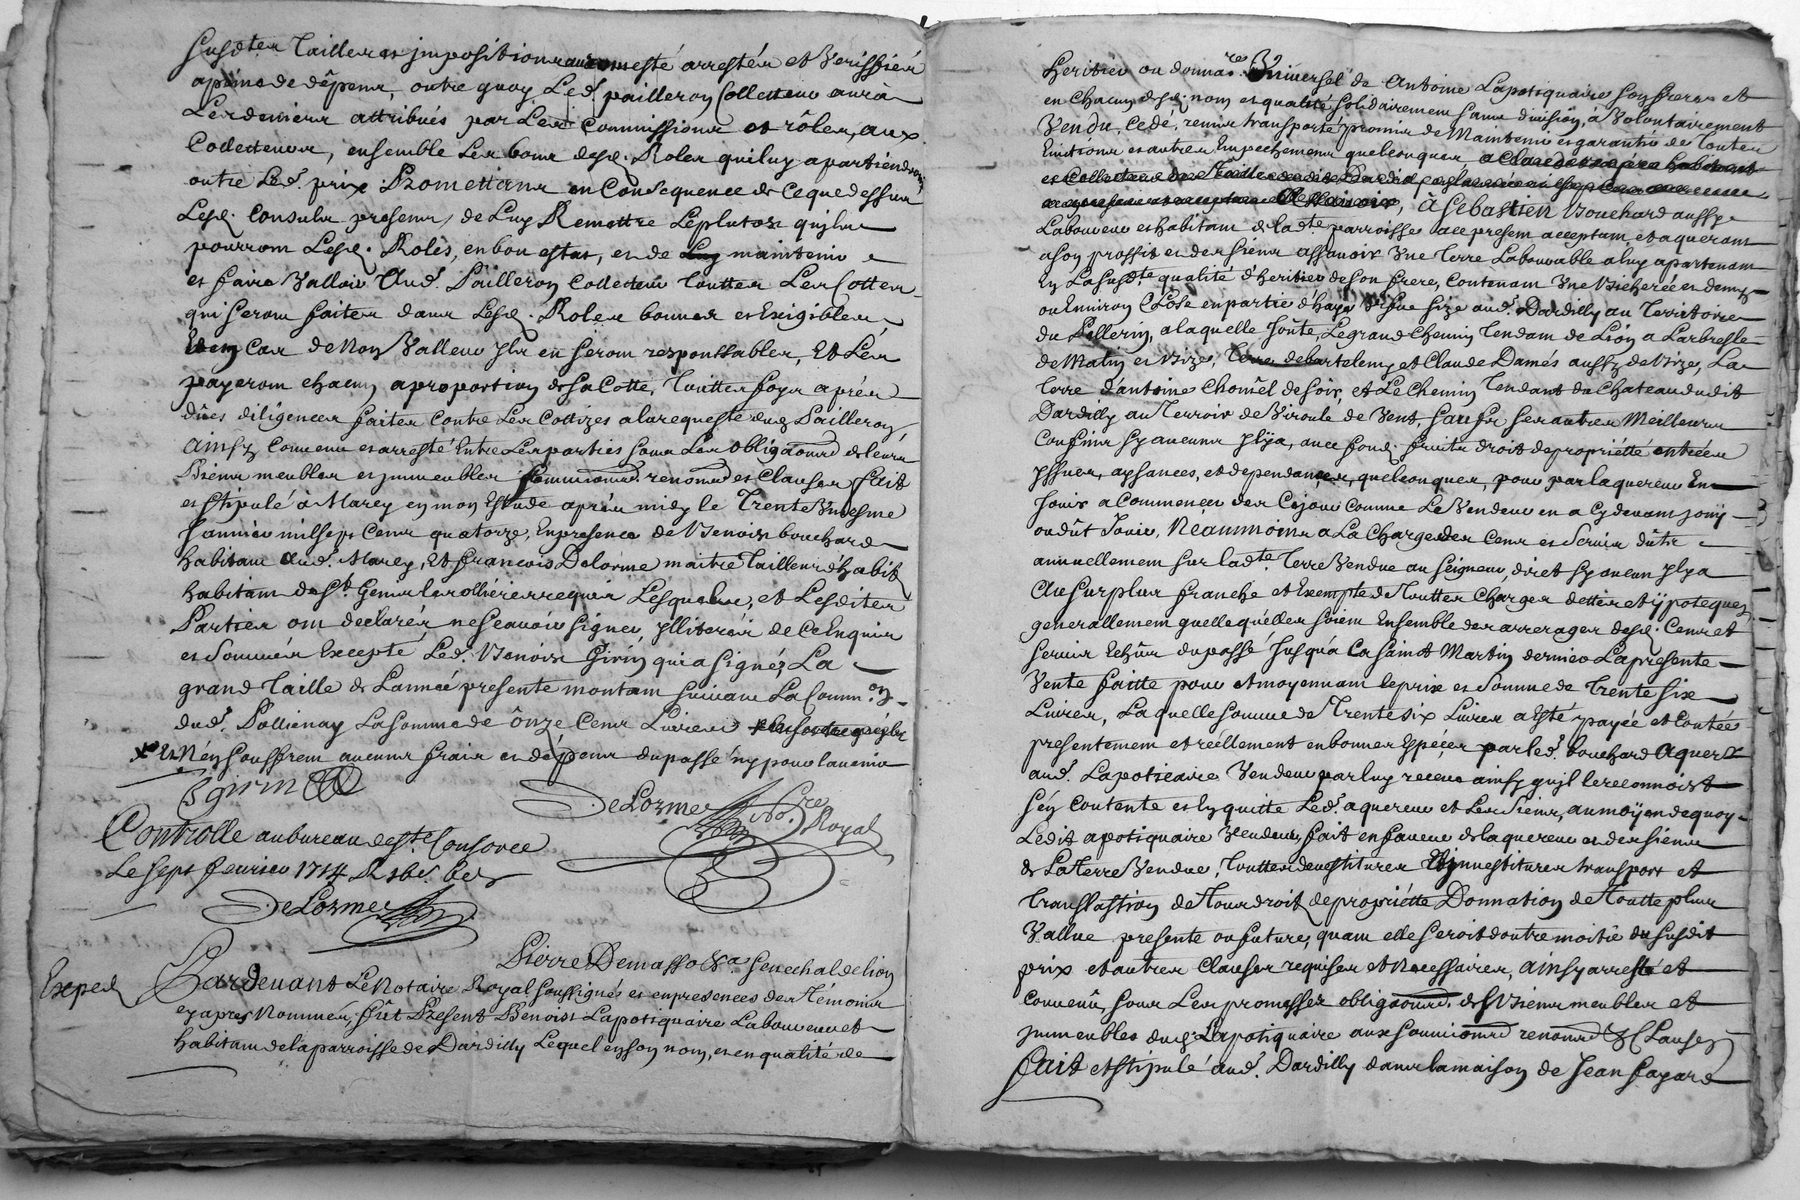 susd.tes Tailles et impositions esté arrestés et Veriffiés
apeine de dêpens, outre quoy Led. pailleron Collecteur aurà
Les deniers attribués par Les Commissions et rôles, aux
Collecteurs, ensemble Les bons desd. Roles quiluy apartiendront
outre Led. prix. Promettans en Consequence de Ceque dessus
Lesd. Consuls presens, de Luy Remettre Leplutost quils
pourront Lesd. Rolés, en bon estat, et de maintenir
et faire Valloir Aud. Pailleron Collecteur Touttes Les Cottes
qui seront faites dans Lesd. Roles bonnes et Exigibles
Et en Cas de Non Valleur Ils en seront responssables, Et Les
payeront chacun aproportion de sa Cotte, Touttes foys aprés
dües diligences faites Contre Les Cottizés alarequeste dud. Pailleron
Ainsy Convenu et arresté Entre Les parties sous Les obligaõns de leurs
Biens meubles et immeubles soumissions renonõns et Clauses fait
et stipulé à Marcy en mon Estude aprés midy le Trente Uniesme
Janvier mil sept Cens quatorze, En presence de Benoist bouchard
habitant aud. Marcy, Et françois Delorme maitre Tailleur d'habit
habitant de St. Genis Larollière requis Lesquels, et Lesdites
Parties ont declarés ne scavoir signer, Illiterés de Ce Enquis
et sommés Excepté Led. Benoist Girin qui a signé, La
grand Taille de Lannée présente montant suivant La Comm.on
dud. Pollionay La somme de ônze Cens Livres
Et N'en souffrent aucuns frais et dépens du passé ny pour lavenir
B girin
DeLorme No.re Royal
Controlle au bureau de Ste Consorce
Le sept fevrier 1714 R
DeLorme
Pierre Demasso Sr. Senechal de lion
Exped
Pardevant Le Notaire Royal soussigné et en presences des Témoins
cy aprés Nommés, fût Présent Benoist Lapotiquaire Laboureur et
habitant de la parroisse de Dardilly Lequel en son nom, et en qualité de
heritier ou donnat.re Universel de Antoine Lapotiquaire son frere et
en Chacun desd. noms et qualité solidairement sans division, a Volontairement
Vendu, Cedé, remis transporté promis de Maintenir et garantir de Toutes
Evictions et autres Empechemens quelconques
à Sebastien Bouchard aussy
Laboureur et habitant de lad.te parroisse acy present acceptant et aquerant
a son proffit et des siens assavoir Une Terre Labourable à luy apartenant
En Lasusd.te qualité d'heritier de son frere, Contenant Une Bicherée et demy
ou Environ Close en partie d'haye Vifve size aud. Dardilly au Territoire
du Pellerin, a laquelle Joûte, Le grand Chemin Tendant de Lion a Larbresle
de Matin et Bize, Terre de bartelemy et Claude Damés aussy de bize, La
Terre d'antoine Chomel de soir, et Le Chemin Tendant du Chateau dudit
Dardilly au Terroir de Viroule de Vent, sauf ses autres Meilleurs
Confins sy aucuns Ilÿa, avec fond, fruits droit de proprietté entrées
Issues, aysances, et dependances, quelconques, pour par laquereur En
Jouir a Commencer des Cejour Comme Le Vendeur en a Cydevant Jouÿ
ou dût Jouir, Neaumoins a La Charge des Cens et Servis dûts
annuellement sur lad.te Terre Vendue au seigneur, diret sy aucun Ilya
Ausurplus franche et Exempte de Touttes Charges dettes et ypoteques
generallement quelle qu'élles soient Ensemble des arrerages desd. Cens et
servis Echûs du passé Jusqu'à La saint Martin dernier La presente
Vente faitte pour et moyennant le prix et Somme de Trente six
Livres, Laquelle somme de Trente six Livres a esté payée et Contée
presentement et réellement en bonnes Espéces par led. bouchard aquer.r
aud. Lapoticaire Vendeur par luy receue ainsy quil le reconnoist
s'en Contente et En quitte Led. aquereur et Les siens, au moÿen de quoy
Ledit apotiquaire Vendeur, fait en faveur de laquereur et des siens
de La Terre Vendue, Touttes devestitures Et investitures transport et
Translastion de Tous droits de proprietté Donnation de Toutte plus
Vallue presente ou future, quant elle seroit doutre moitié du susdit
prix et autres Clauses requises et Necessaires, Ainsy arresté et
Convenû, sous Les promesses obligaõns de ses biens meubles et
immeubles dud. Lapotiquaire aux soumissions renonõns & Clauses
fait et stipulé aud. Dardilly dans la maison de Jean fayard